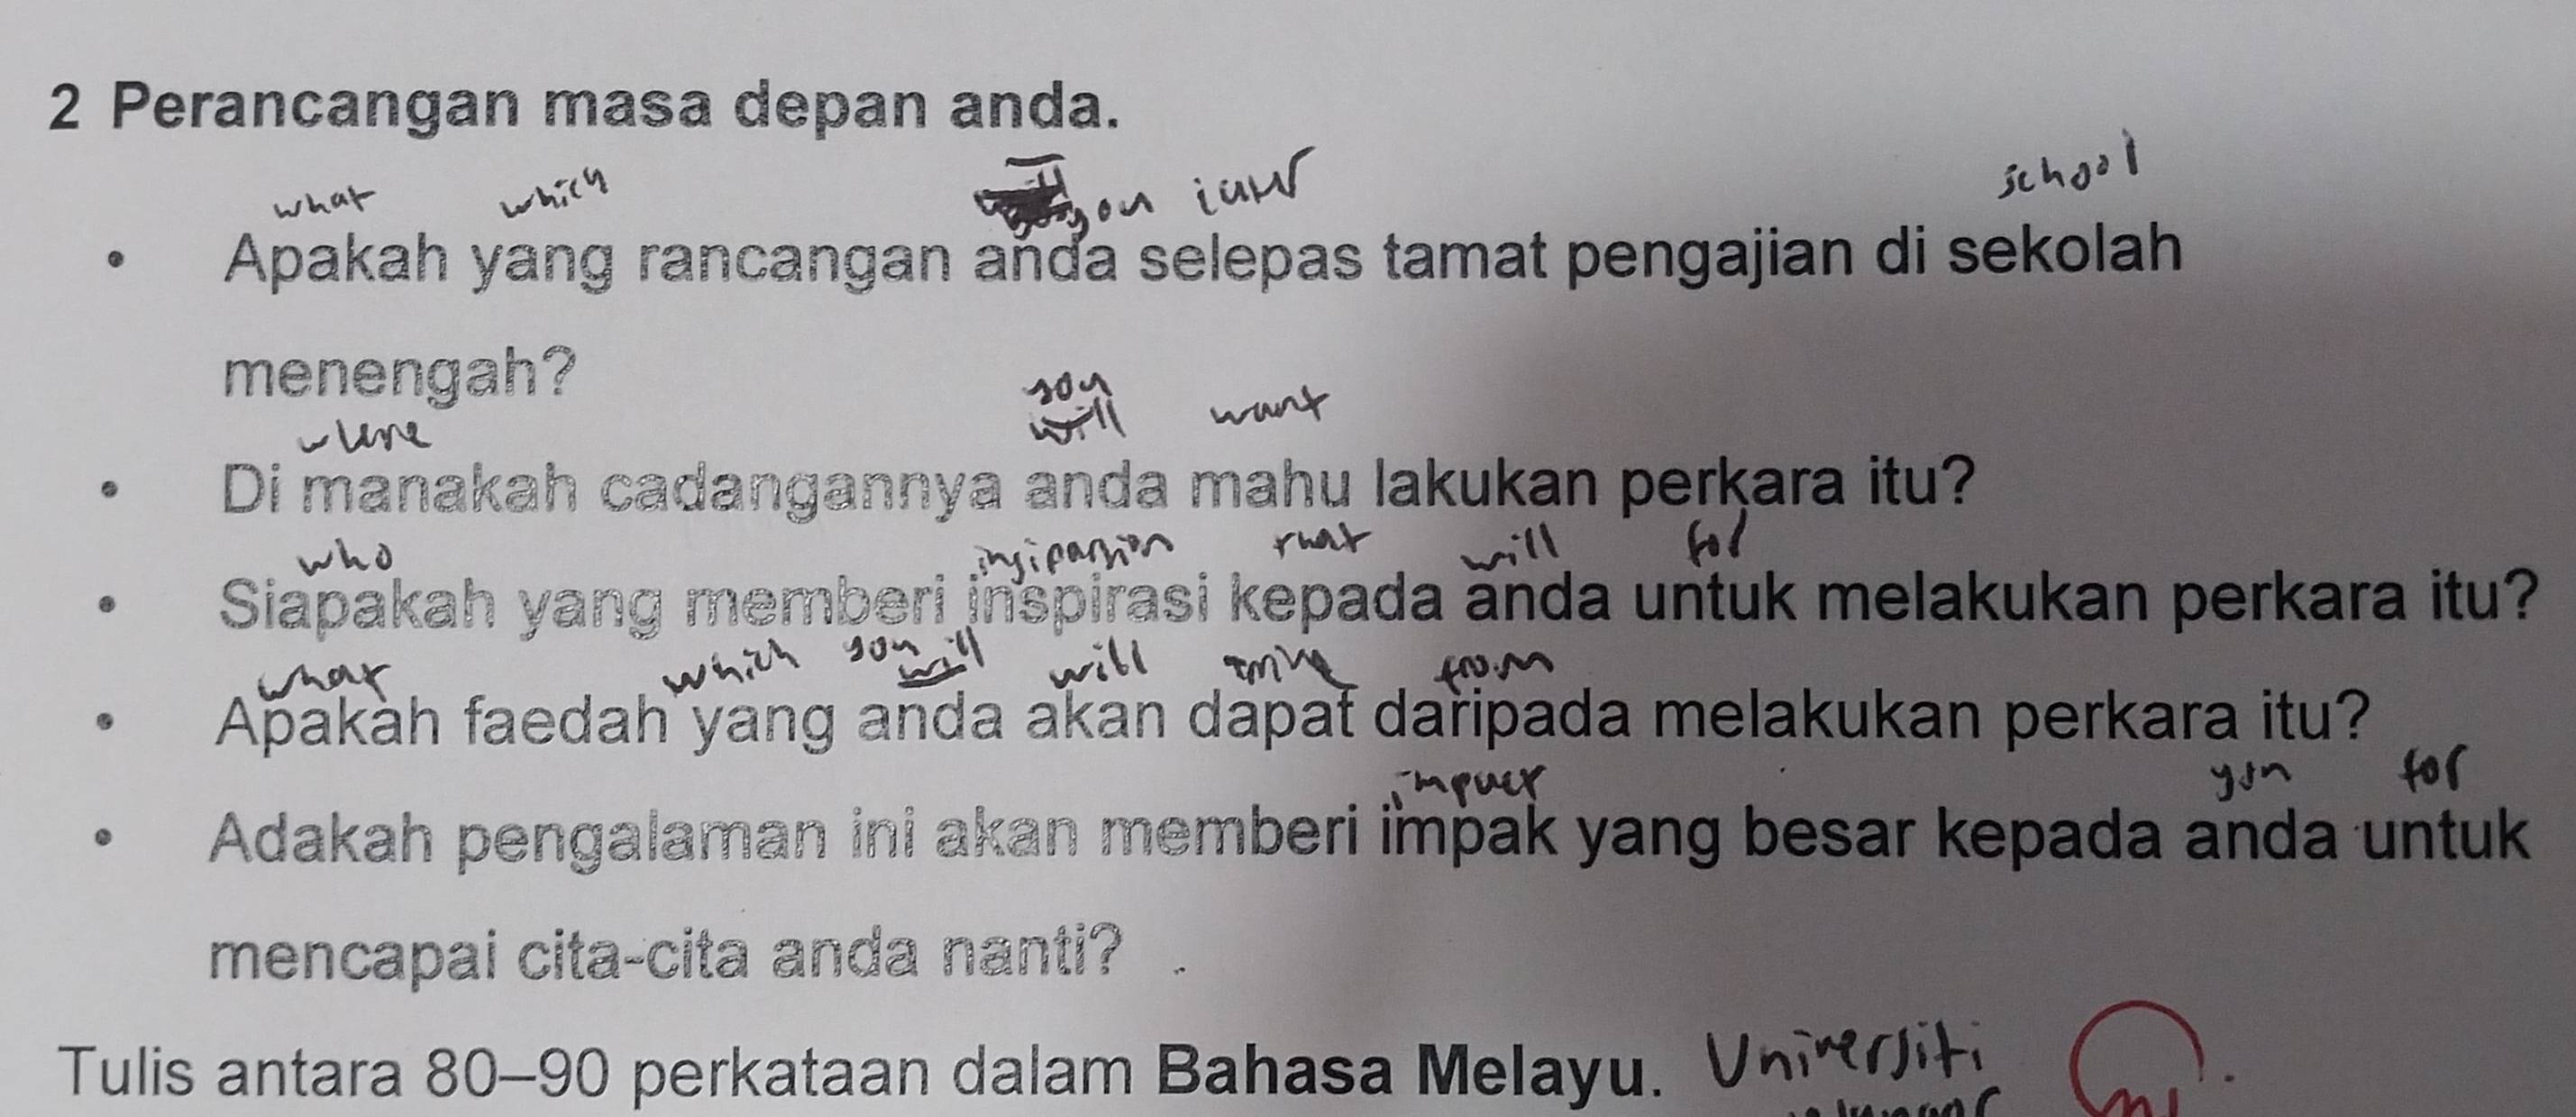 2 Perancangan masa depan anda.
what which you school
• Apakah yang rancangan anda selepas tamat pengajian di sekolah
menengah?
where you will want
• Di manakah cadangannya anda mahu lakukan perkara itu?
who that will for
• Siapakah yang memberi inspirasi kepada anda untuk melakukan perkara itu?
what which you will will from
• Apakah faedah yang anda akan dapat daripada melakukan perkara itu?
you for
• Adakah pengalaman ini akan memberi impak yang besar kepada anda untuk
mencapai cita-cita anda nanti?
Tulis antara 80–90 perkataan dalam Bahasa Melayu. Universiti